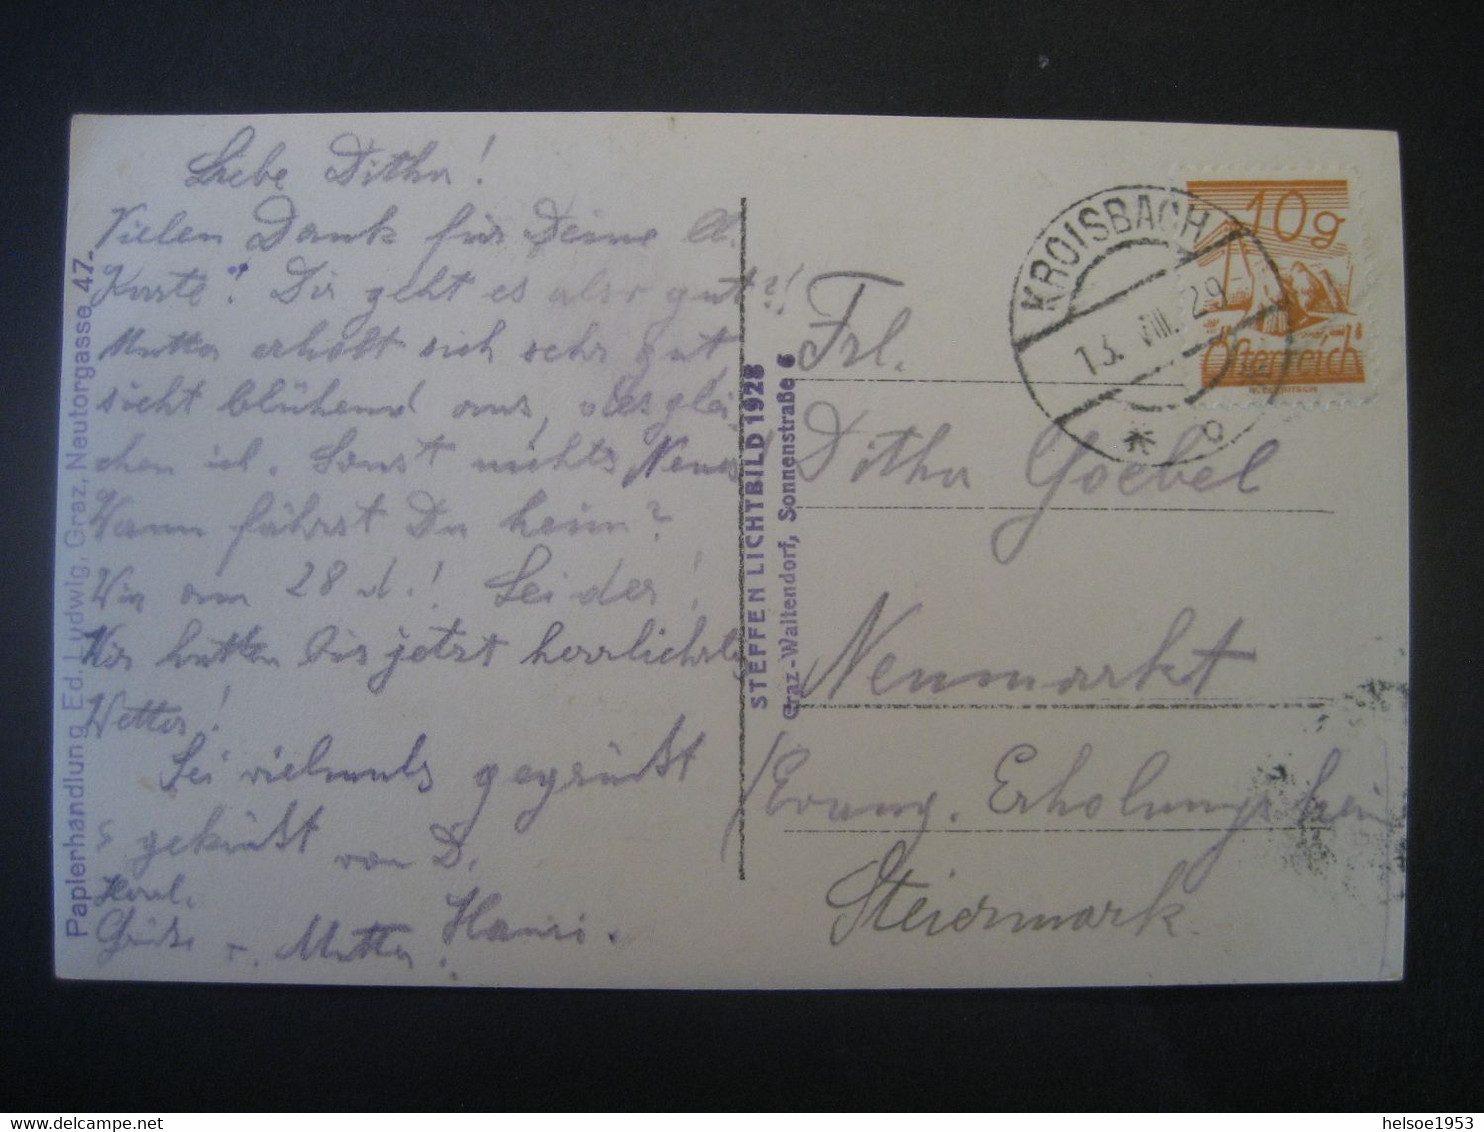 Liebe Ditha!
Vielen Dank für Deine lb.
Karte! Dir geht es also gut?!
Mutter erholt sich sehr gut
sieht blühend aus, desglei
chen ich. Sonst nichts Neues
Wann fährst Du heim?
Wir am 28 d.! Leider!
Wir hatten bis jetzt herrlichste
Wetter!
Sei vielmals gegrüßt
u geküßt von D.
Hansi.
Herzl.
Grüße v. Mutter.
Papierhandlung Ed. Ludwig, Graz, Neutorgasse 47.
STEFFEN LICHTBILD 1928
Graz-Waltendorf, Sonnenstraße 6
KROISBACH
13. VIII. 29
* b
10g
Österreich
Frl.
Ditha Goebel
Neumarkt
/Evang. Erholungsheim
Steiermark.
helsoe1953